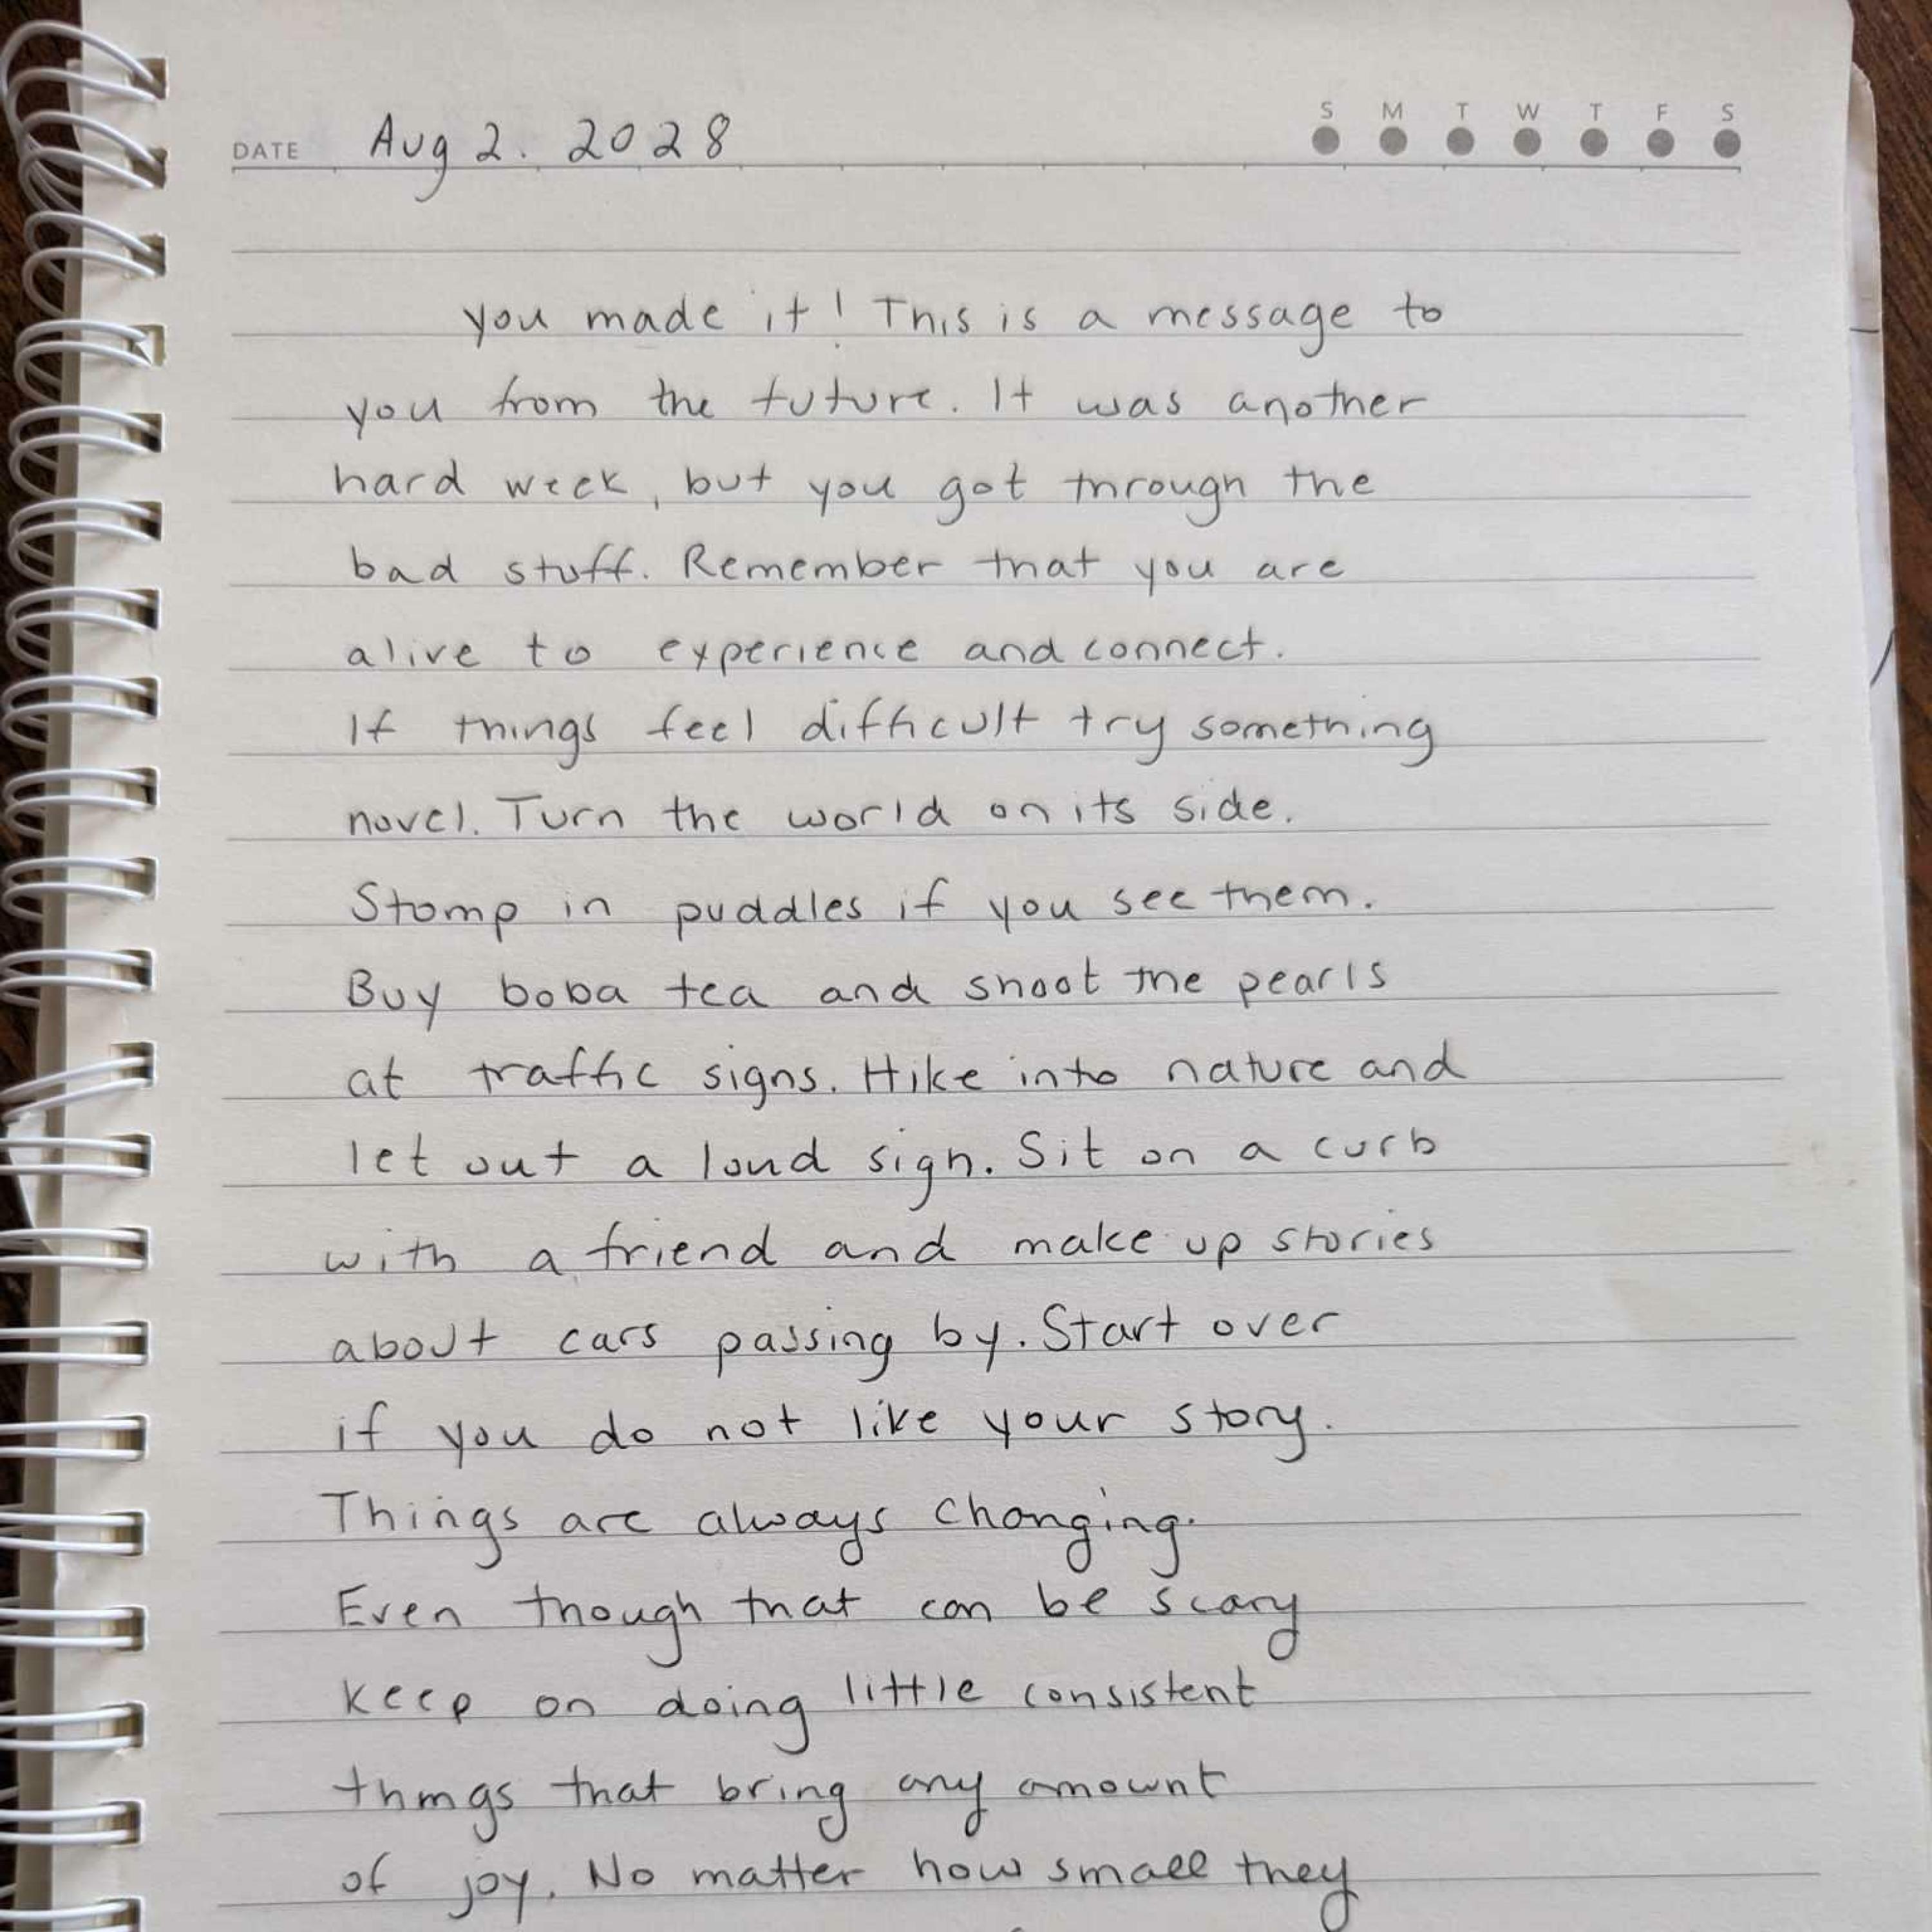 S M T W T F S
DATE Aug 2. 2028
you made it! This is a message to
you from the future. It was another
hard week, but you got through the
bad stuff. Remember that you are
alive to experience and connect.
If things feel difficult try something
novel. Turn the world on its side.
Stomp in puddles if you see them.
Buy boba tea and shoot the pearls
at traffic signs. Hike into nature and
let out a loud sigh. Sit on a curb
with a friend and make up stories
about cars passing by. Start over
if you do not like your story.
Things are always changing.
Even though that can be scary
keep on doing little consistent
things that bring any amount
of joy. No matter how small they